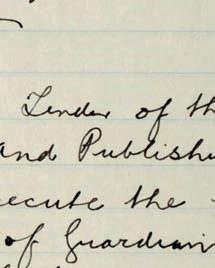 Tender of th
and Publishi
ecute the
of Guardian